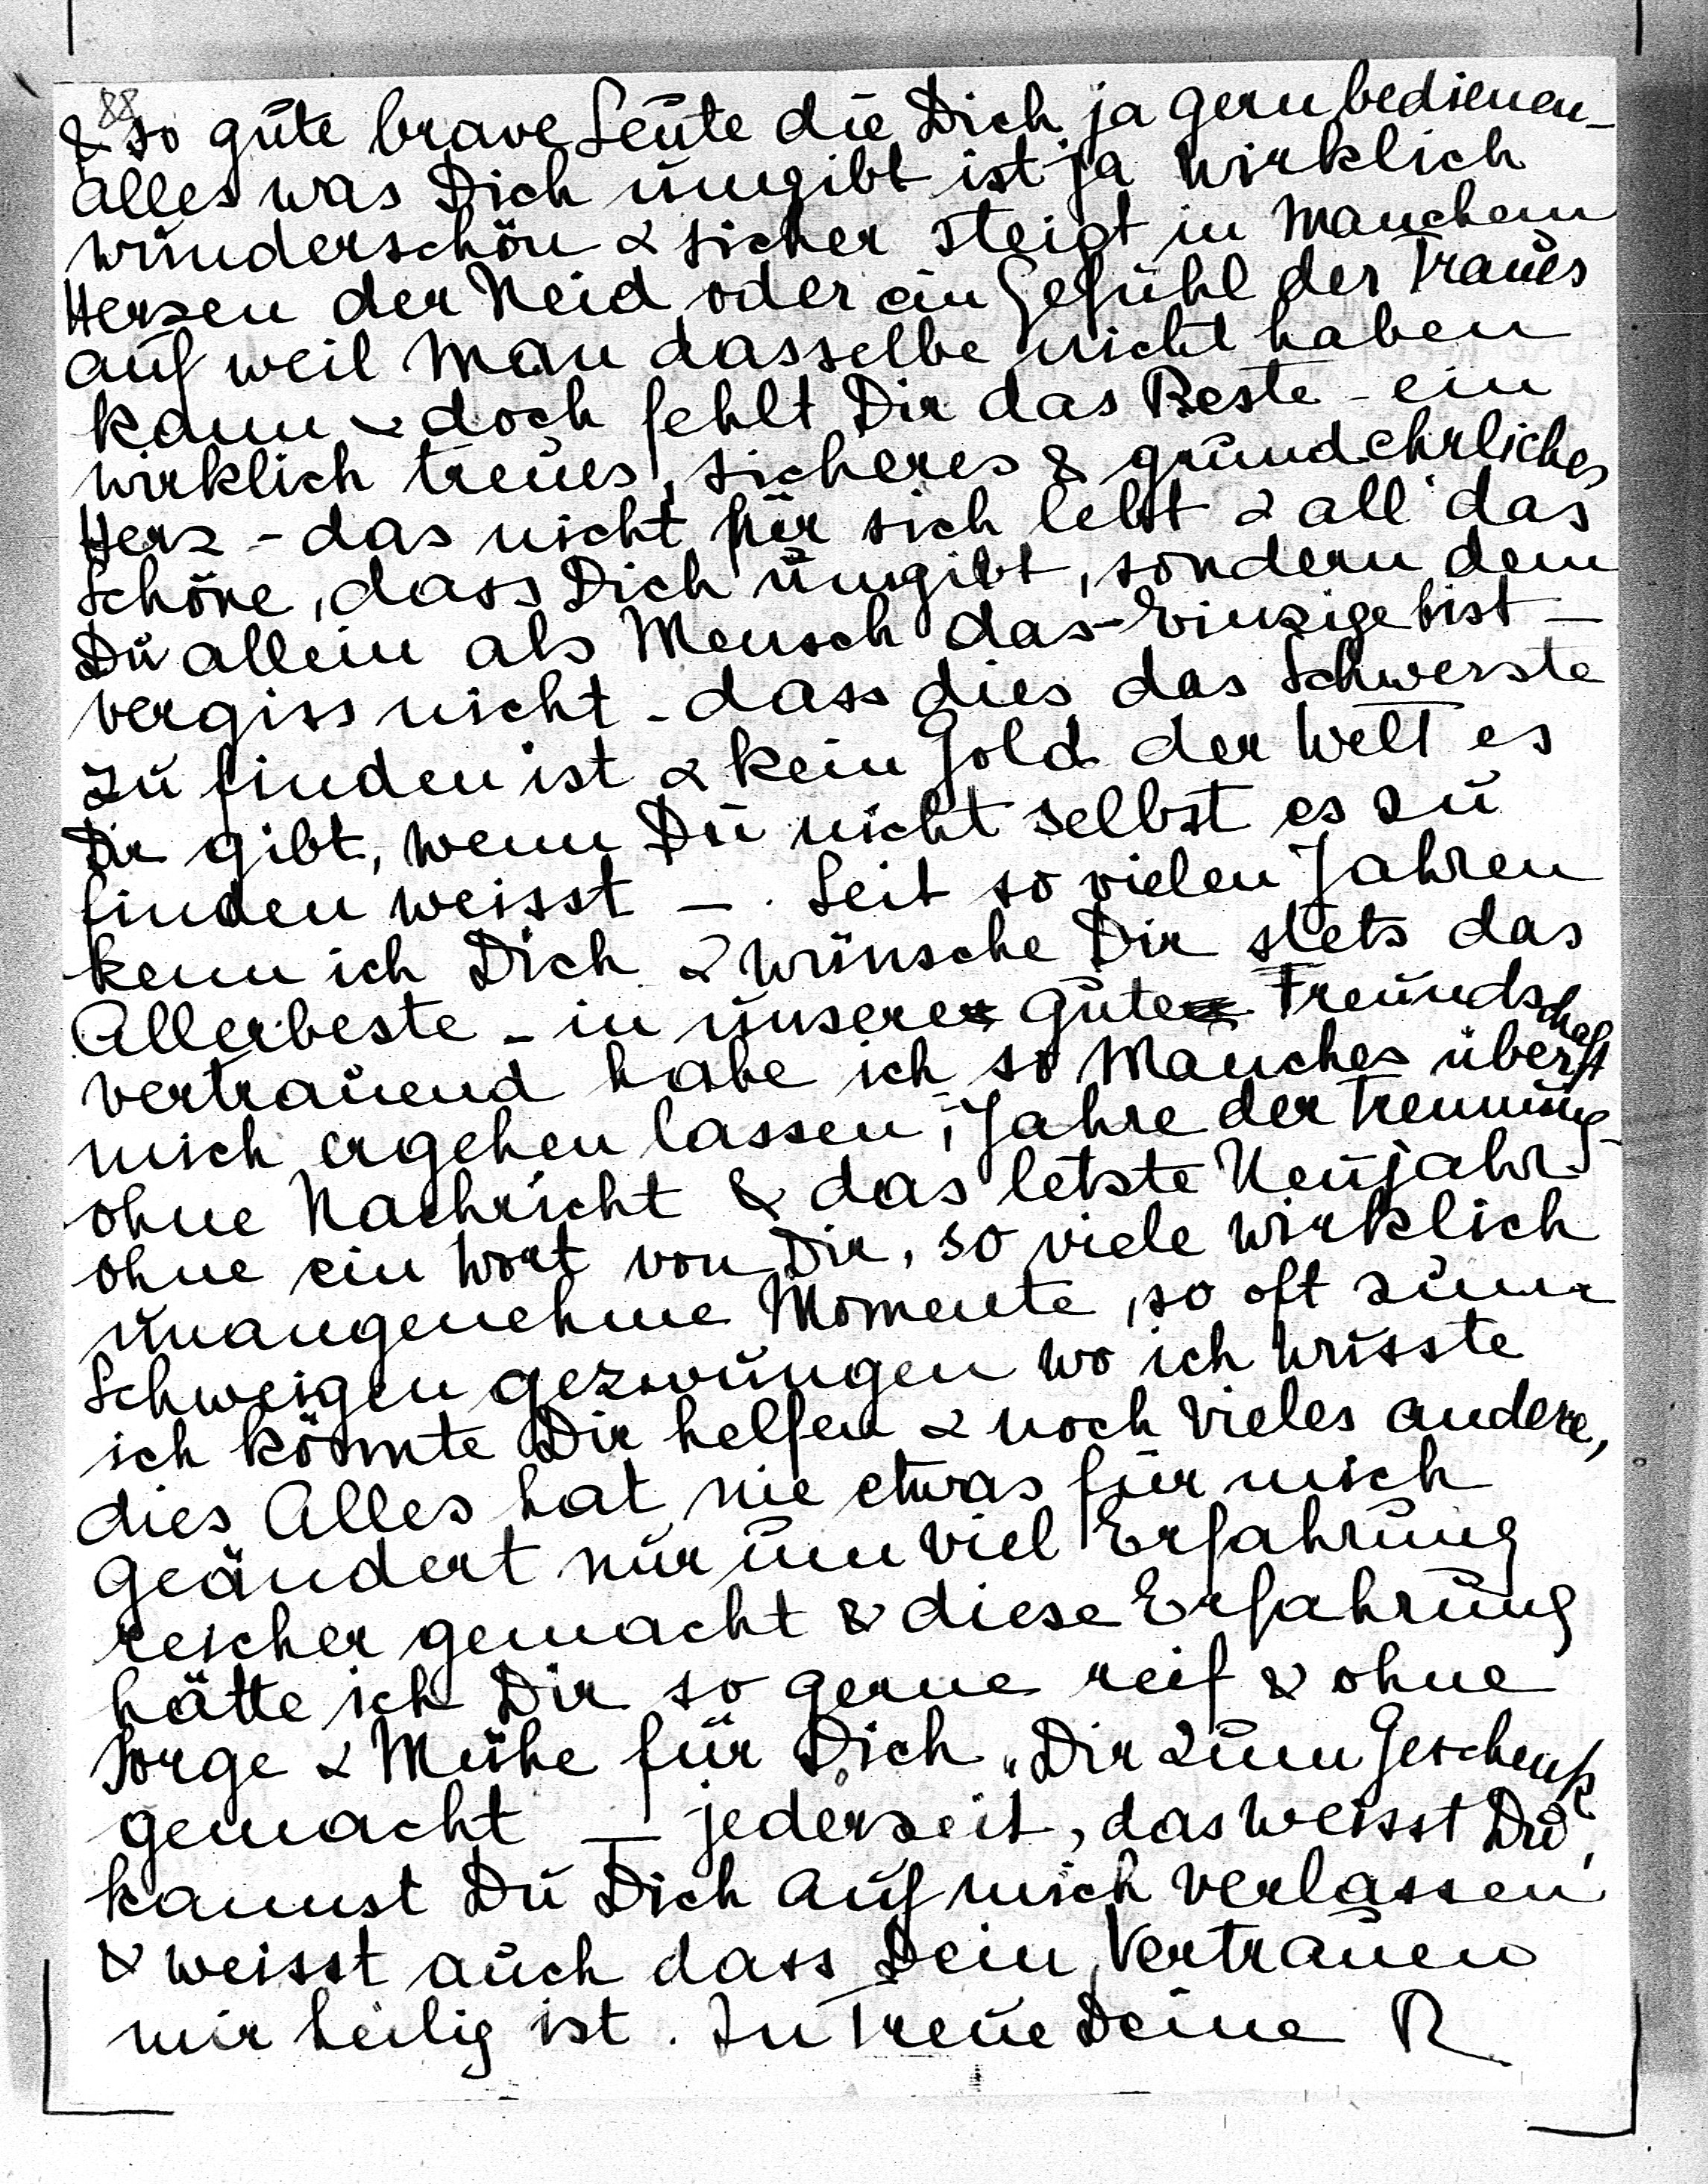 88
& so gute brave Leute die Dich ja gern bedienen –
alles was Dich umgibt ist ja wirklich
wunderschön & sicher steigt in manchem
Herzen der Neid oder ein Gefühl des
auf weil man dasselbe nicht haben
kann & doch fehlt Dir das Beste – ein
wirklich treues, sicheres & grundehrliches
Herz – das nicht für sich lebt & all' das
Schöne, dass Dich umgibt, sondern dem
Du allein als Mensch das Einzige bist –
vergiss nicht – dass dies das Schwerste
zu finden ist & kein Gold der Welt es
Dir gibt, wenn Du nicht selbst es zu
finden weisst –. Seit so vielen Jahren
kenn ich Dich & wünsche Dir stets das
Allerbeste – in unsere gute Freundschaft
vertrauend habe ich so Manches über
mich ergehen lassen, Jahre der Trennung –
ohne Nachricht & das letzte Neujahr
ohne ein Wort von Dir, so viele wirklich
unangenehme Momente, so oft zum
Schweigen gezwungen wo ich wusste
ich könnte Dir helfen & noch vieles andere,
dies Alles hat nie etwas für mich
geändert nur um viel Erfahrung
reicher gemacht & diese Erfahrung
hätte ich Dir so gerne reif & ohne
Sorge & Mühe für Dich, Dir zum Geschenk
gemacht – jederzeit, das weisst Du,
kannst Du Dich auf mich verlassen
& weisst auch dass Dein Vertrauen
mir heilig ist. In Treue Deine R